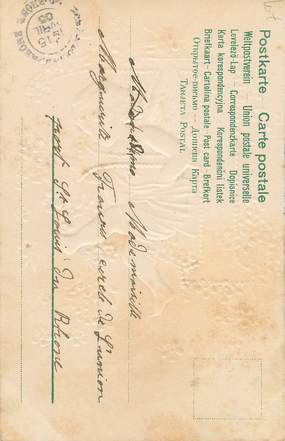 Postkarte Carte postale
Weltpostverein Union postale universelle
Levelező-Lap - Correspondenzkarte - Dopisnice
Karta korespondencyjna - Korespondenční listek
Briefkaart - Cartolina postale - Post card - Brefkort
Открытое письмо - Дописна Карта
Tarjeta Postal
Mademoiselle
Marguerite cercle de l'union
port St Louis du Rhone